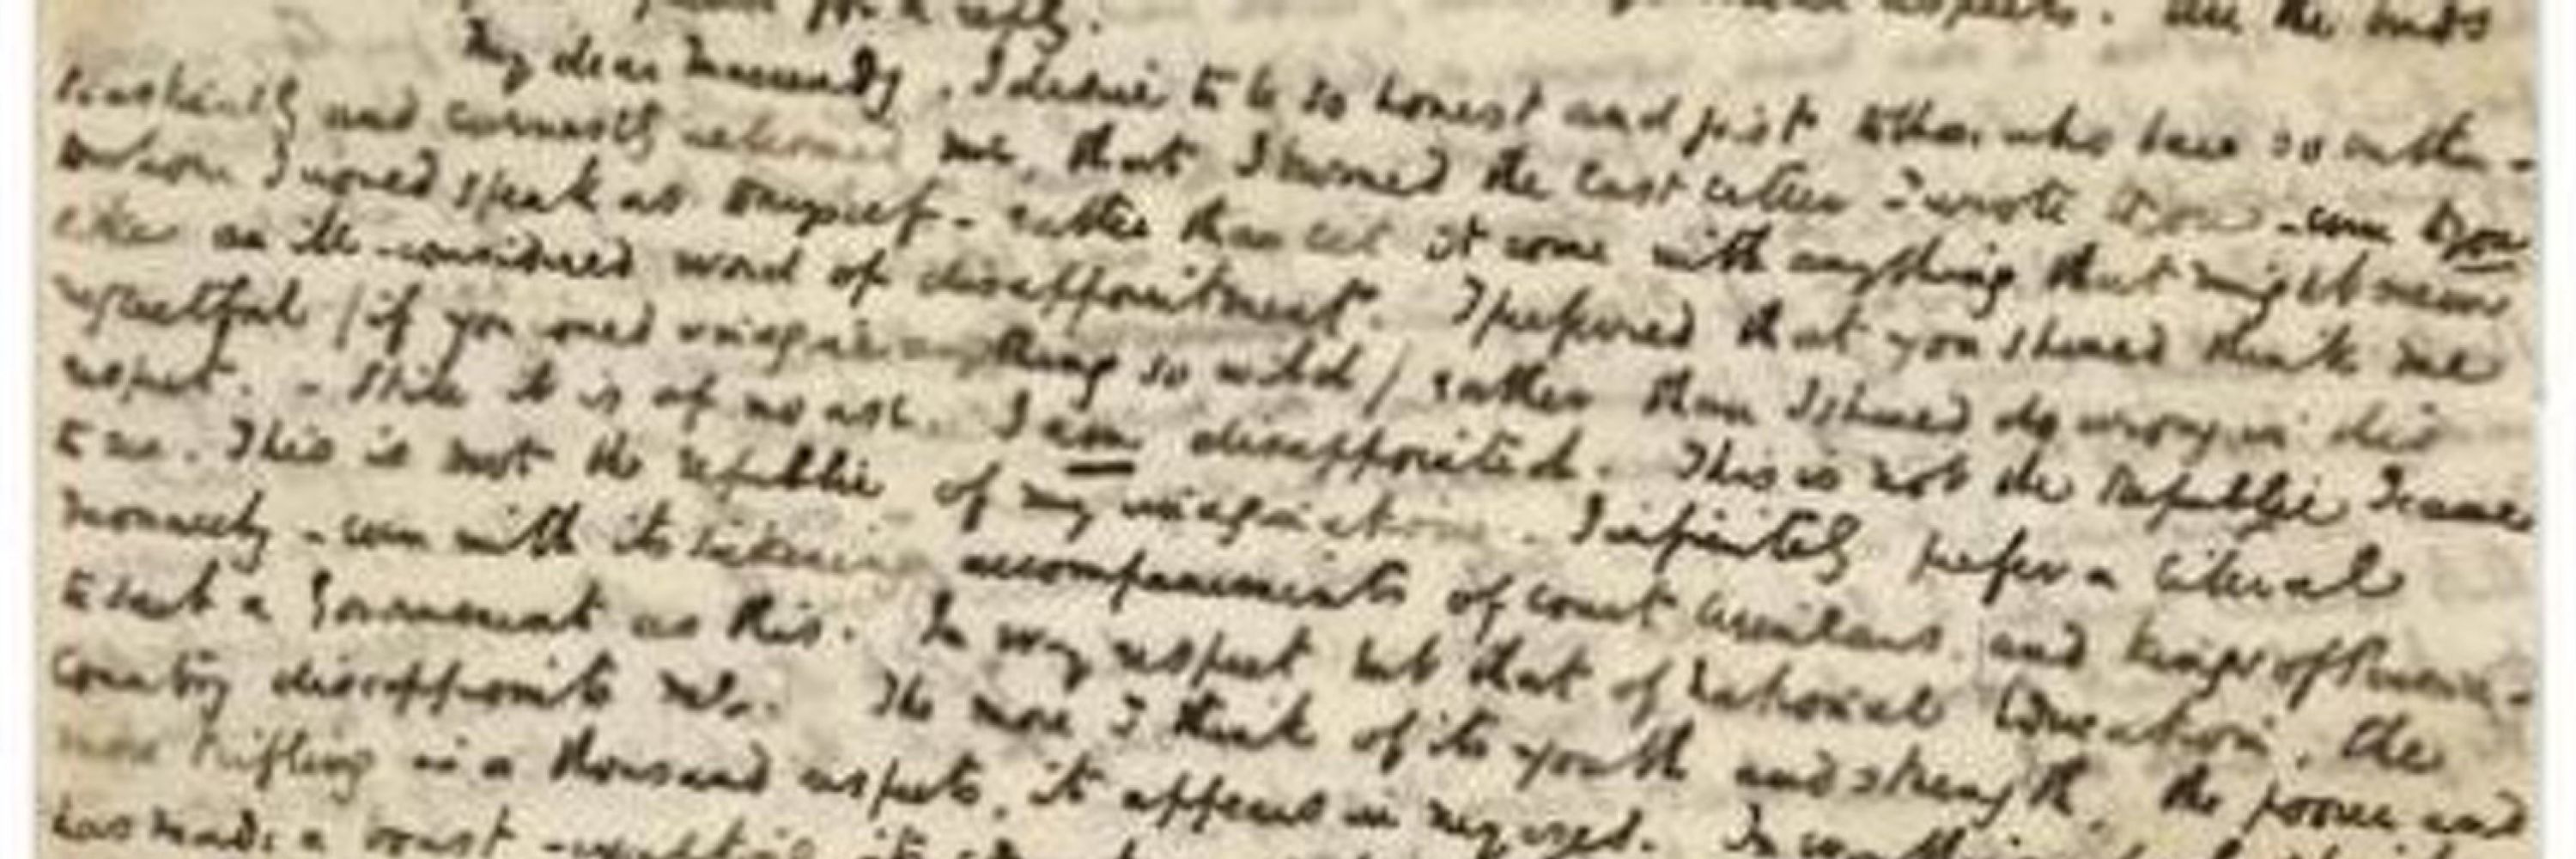 for a reply.
My dear Macready, I desire to be so honest and just to those who have so enthu-
siastically and earnestly welcomed me, that I burned the last letter I wrote to you - even to you
to whom I would speak as to myself - rather than let it come with anything that might seem
like an ill-considered word of disappointment. I preferred that you should think me
neglectful (if you could imagine anything so wild) rather than I should do wrong in this
respect. - Still it is of no use. I am disappointed. This is not the Republic I came
to see. This is not the Republic of my imagination. I infinitely prefer a liberal
Monarchy - even with its sickening accompaniments of Court Circulars, and Kings of Prussia -
to such a Government as this. In every respect but that of National Education, the
Country disappoints me. The more I think of its youth and strength, the poorer and
more trifling in a thousand respects, it appears in my eyes. In everything
has made a boast - excepting its